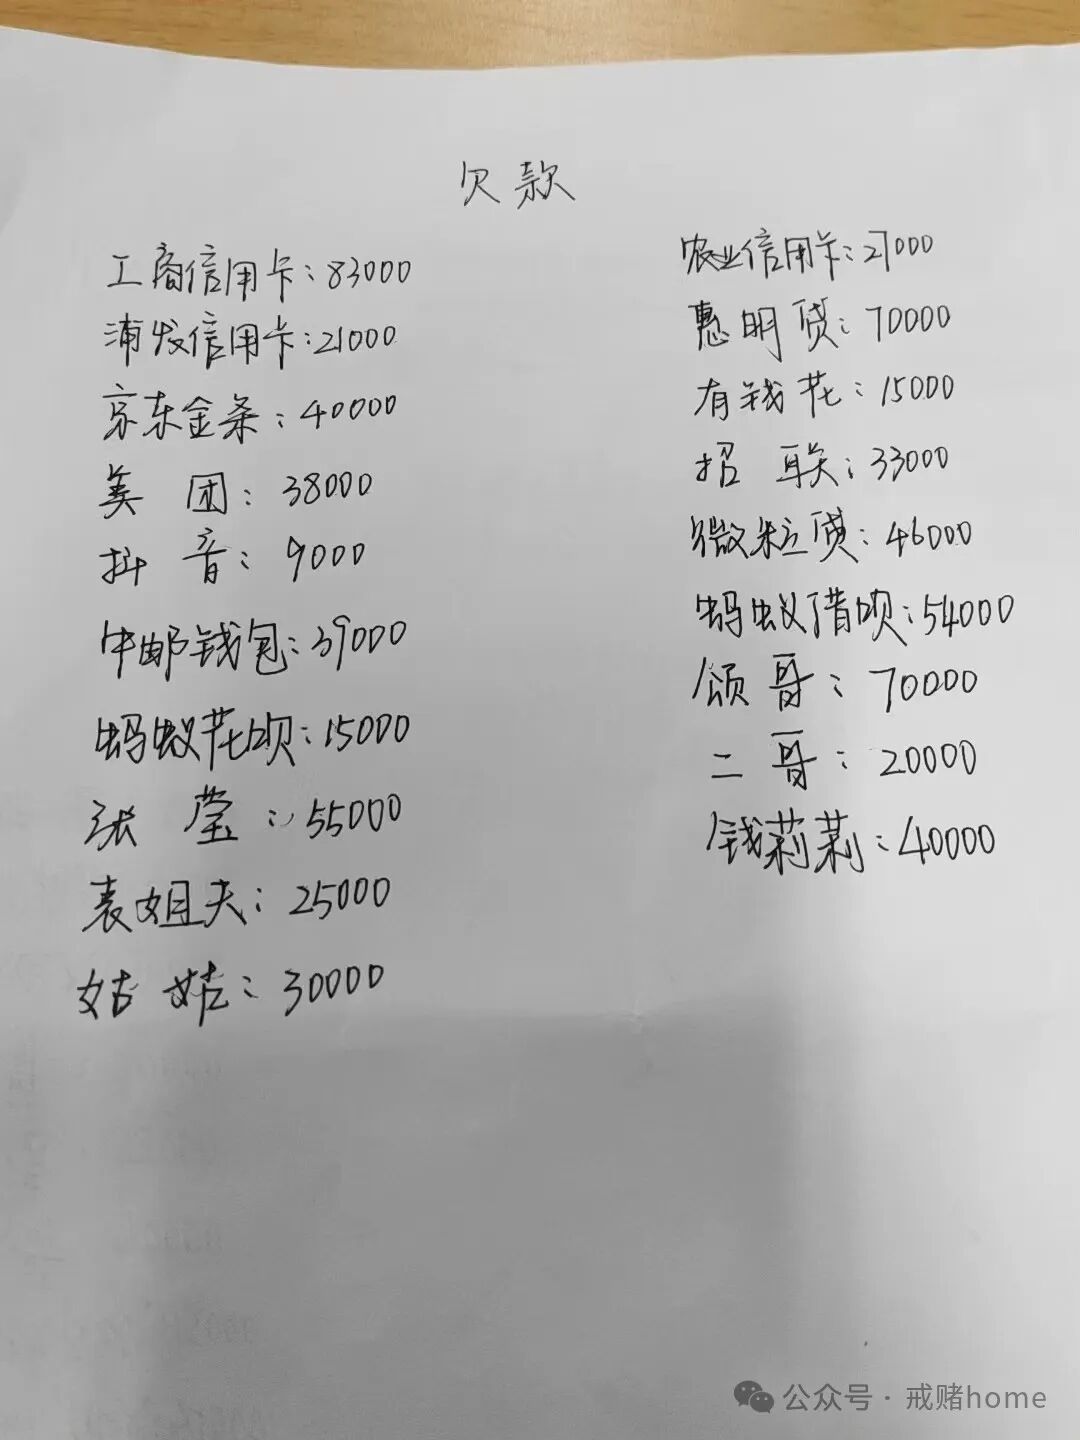 欠款
工商信用卡：83000
浦发信用卡：21000
京东金条：40000
美团：38000
抖音：9000
中邮钱包：39000
蚂蚁花呗：15000
张莹：55000
表姐夫：25000
姑姑：30000
农业信用卡：27000
惠明贷：70000
有钱花：15000
招联：33000
微粒贷：46000
蚂蚁借呗：54000
颂哥：70000
二哥：20000
钱莉莉：40000
公众号·戒赌home